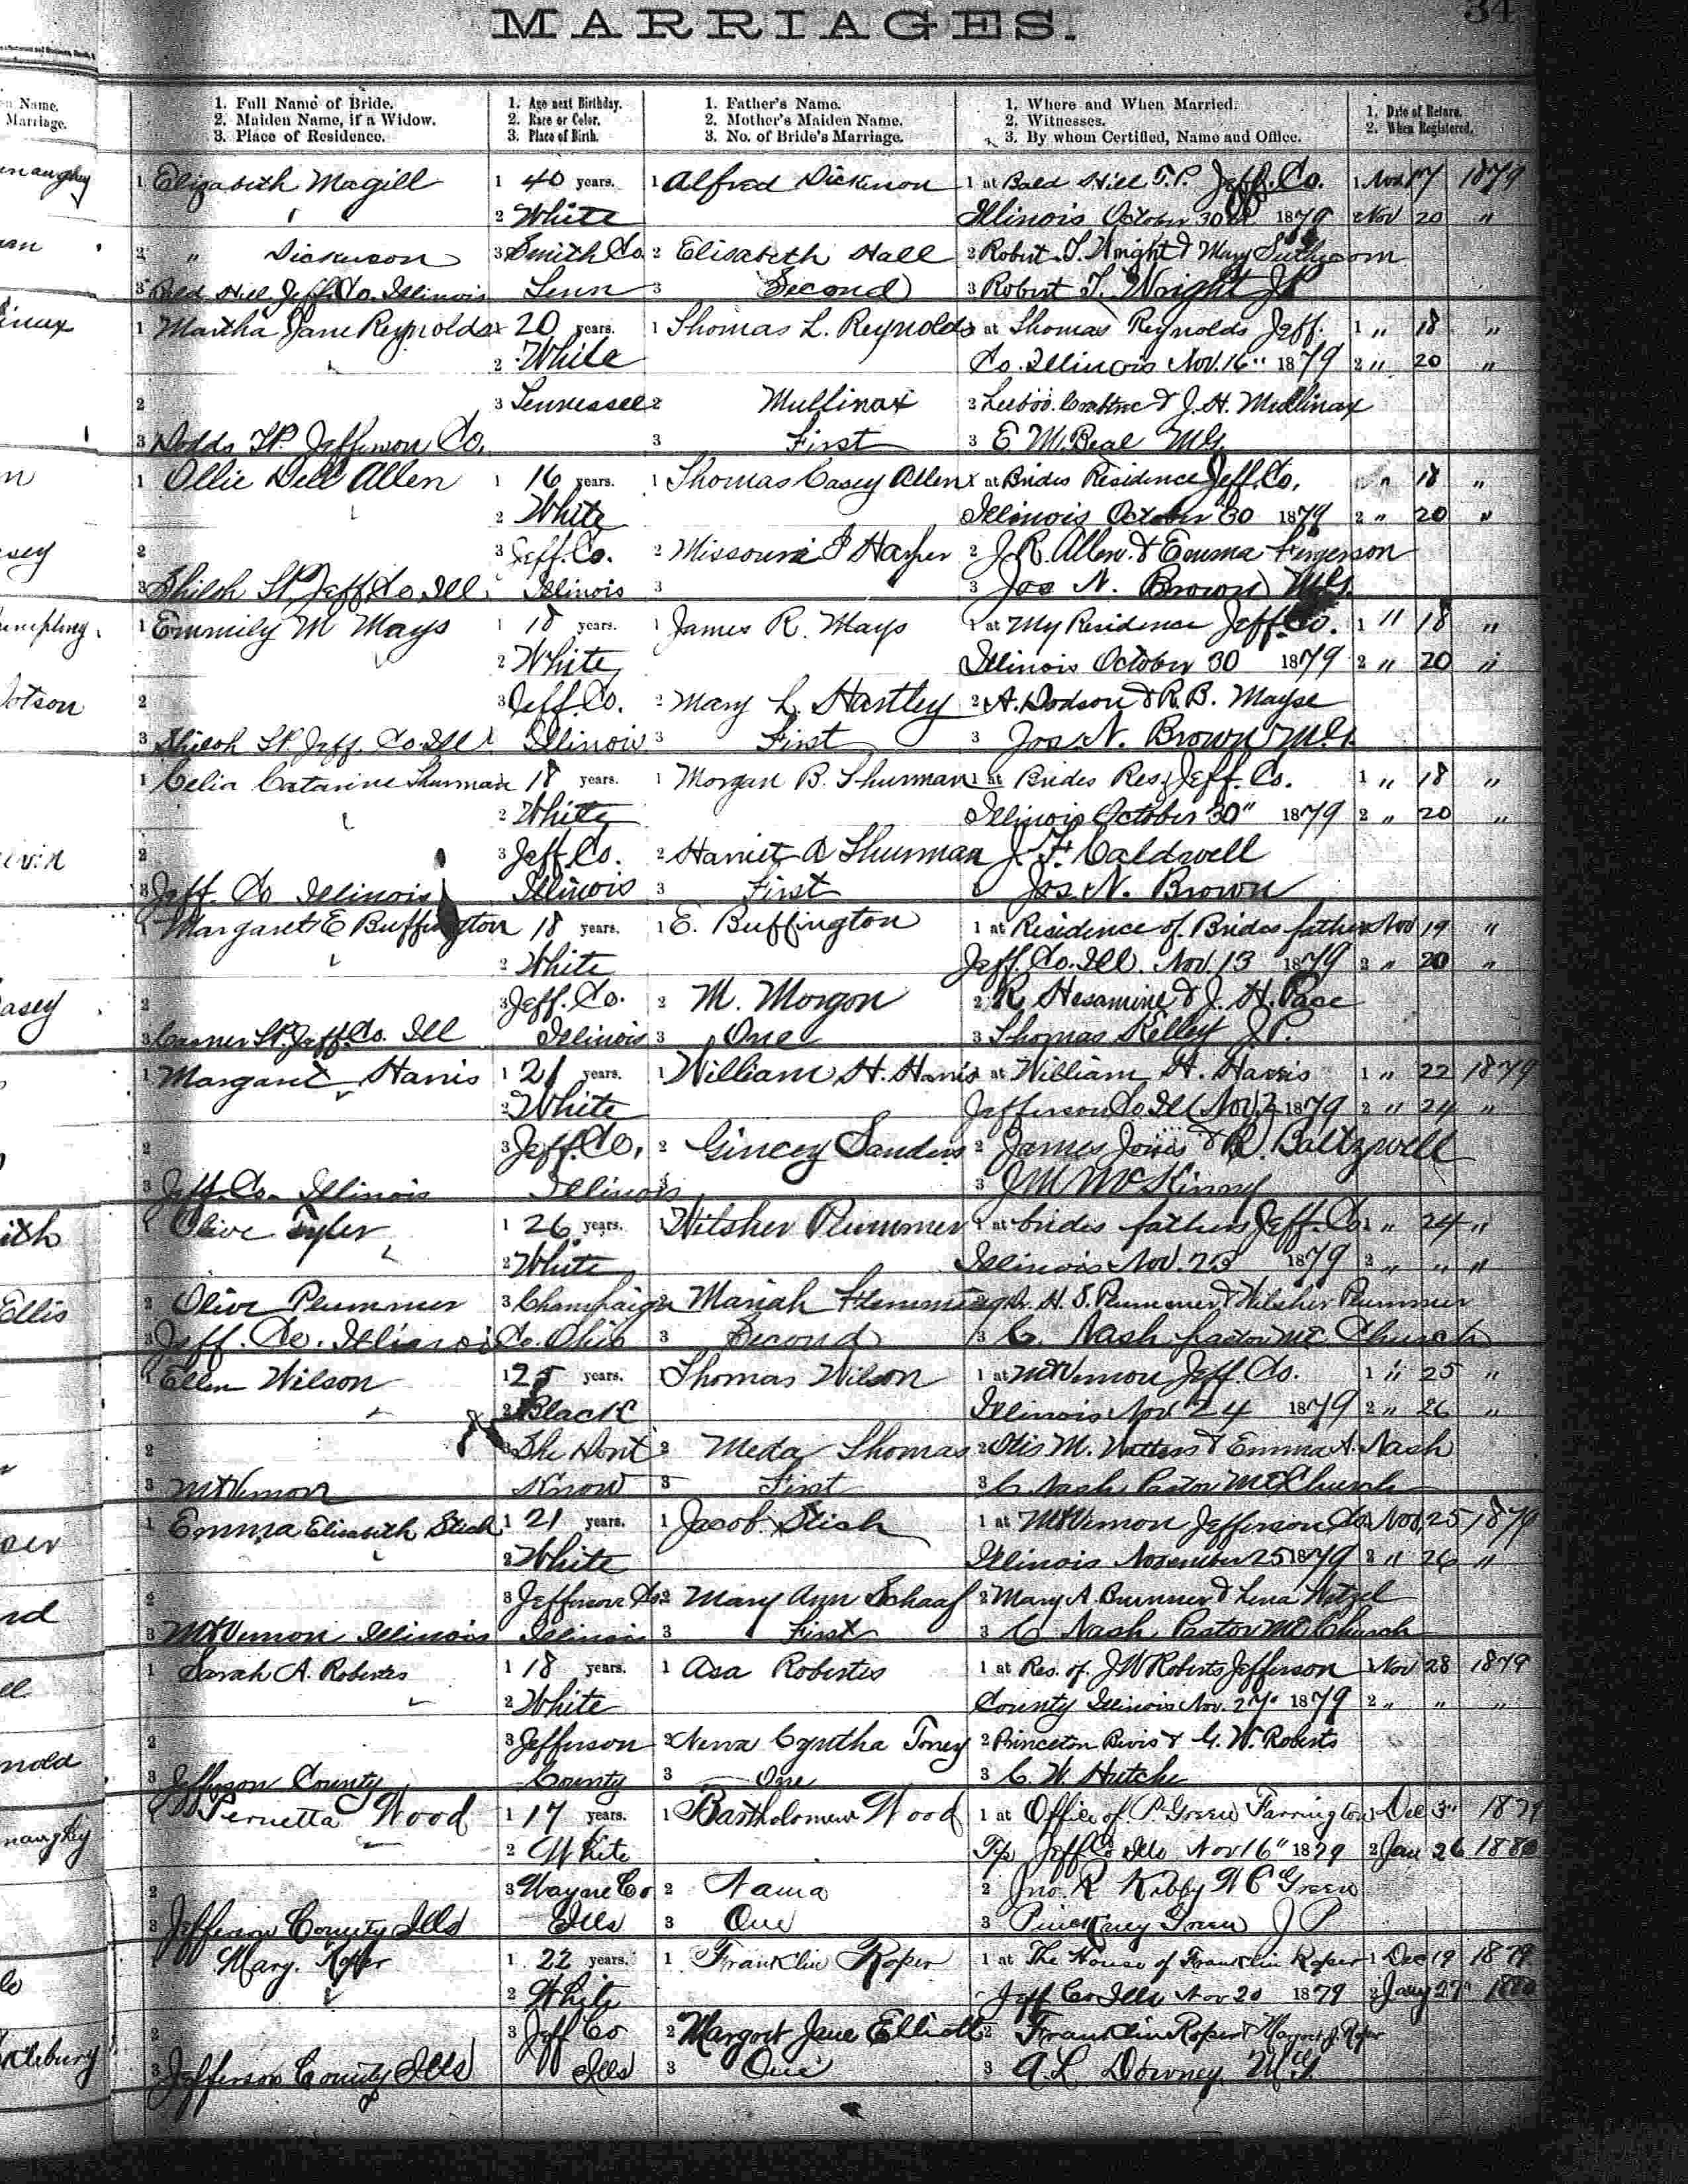 MARRIAGES.
34
Name.
Marriage.
1. Full Name of Bride.
2. Maiden Name, if a Widow.
3. Place of Residence.
1. Age next Birthday.
2. Race or Color.
3. Place of Birth.
1. Father's Name.
2. Mother's Maiden Name.
3. No. of Bride's Marriage.
1. Where and When Married.
2. Witnesses.
3. By whom Certified, Name and Office.
1. Date of Return.
2. When Registered.
1 Elizabeth Magill 1 40 years. 1 Alfred Dickinson 1 at Bald Hill T.P. Jeff. Co. 1 Nov 17 1879
2 White Illinois October 30th 1879 2 Nov 20 "
2 " Dickinson 3 Smith Co. 2 Elisabeth Hall 2 Robert T. Wright & Mary
3 Bald Hill Jeff. Co. Illinois Tenn 3 Second 3 Robert T. Wright J.P.
1 Martha Jane Reynolds 1 20 years. 1 Thomas L. Reynolds 1 at Thomas Reynolds Jeff. 1 " 18 "
2 White Co. Illinois Nov. 16" 1879 2 " 20 "
2 3 Tennessee 2 Mullinax 2 & J. H. Mullinax
3 Dodds TP. Jefferson Co. 3 First 3 E. M. Beal M.G.
1 Ollie Dell Allen 1 16 years. 1 Thomas Casey Allen 1 at Brides Residence Jeff. Co. " 18 "
2 White Illinois October 30 1879 2 " 20 "
2 3 Jeff. Co. 2 Missouri J Harper 2 J. R. Allen & Emma
3 Shiloh TP. Jeff. Co. Ill. Illinois 3 3 Jos N. Brown M.G.
1 Emmily M Mays 1 18 years. 1 James R. Mays 1 at My Residence Jeff. Co. 1 " 18 "
2 White Illinois October 30 1879 2 " 20 "
2 3 Jeff. Co. 2 Mary L. Hartley 2 A. Dodson & R. B. Mayse
3 Shiloh TP. Jeff. Co. Ill Illinois 3 First 3 Jos N. Brown M.G.
1 Celia Catarine Thurman 18 years. 1 Morgan B. Thurman 1 at Brides Res. Jeff. Co. 1 " 18 "
2 White Illinois October 30" 1879 2 " 20 "
2 3 Jeff. Co. 2 Harriet A Thurman J. F. Caldwell
3 Jeff. Co Illinois Illinois 3 First Jos. N. Brown
1 Margaret E Buffington 18 years. 1 E. Buffington 1 at Residence of Brides father Nov 19 "
2 White Jeff. Co. Ill. Nov. 13 1879 2 " 20 "
2 3 Jeff. Co. 2 M. Morgon 2 R. & J. H. Pace
3 Casner TP. Jeff. Co. Ill Illinois 3 One 3 Thomas Kelley J.P.
1 Margaret Harris 1 21 years. 1 William H. Harris at William H. Harris 1 " 22 1879
2 White Jefferson Co Ill Nov. 2 1879 2 " 24 "
2 3 Jeff. Co. 2 Gincey Sanders 2 James Jones & R. Baltzwell
3 Jeff. Co. Illinois Illinois 3 3 J M McKinny
1 Olive Tyler 1 26 years. 1 Wilsher Plummer 1 at brides fathers Jeff. Co. 1 " 24 "
2 White Illinois Nov. 23 1879 2 " " "
2 Olive Plummer 3 Champaign 2 Mariah Flemming H. S. Plummer & Wilsher Plummer
3 Jeff. Co. Illinois Co. Ohio 3 Second 3 C. Nash Pastor M.E. Church
1 Ellen Wilson 1 25 years. Thomas Wilson 1 at Mt Vernon Jeff. Co. 1 " 25 "
2 Black Illinois Nov 24 1879 2 " 26 "
2 3 She Dont 2 Meda Thomas 2 Otis M. Watters & Emma A. Nash
3 Mt Vernon Know 3 First 3 C. Nash Pastor M.E. Church
1 Emma Elisabeth Stich 1 21 years. 1 Jacob Stich 1 at Mt Vernon Jefferson Co. Nov. 25 1879
2 White Illinois November 25 1879 2 " 26 "
2 3 Jefferson Co. 2 Mary Ann Schaaf 2 Mary A. Brunner & Lena Hitzel
3 Mt Vernon Illinois Illinois 3 First 3 C Nash Pastor M.E. Church
1 Sarah A. Roberts 1 18 years. 1 Asa Roberts 1 at Res. of J W Roberts Jefferson 1 Nov 28 1879
2 White County Illinois Nov. 27" 1879 2 " " "
2 3 Jefferson 2 Cyntha Toney 2 Princeton & G. W. Roberts
3 Jefferson County County 3 One 3 C. W. Hutche
1 Pernetta Wood 1 17 years. 1 Bartholomew Wood 1 at Office of P. Green Farrington 1 Dec 3" 1879
2 White Tp Jeff Co Ills Nov 16" 1879 2 Jan 26 1880
2 3 Wayne Co 2 2 Jno. R Kibby W C Green
3 Jefferson County Ills Ills 3 One 3 Pinckney Green J P
1 Mary Roper 1 22 years. 1 Franklin Roper 1 at The House of Franklin Roper 1 Dec 19 1879
2 White Jeff Co Ills Nov 20 1879 2 Jany 27" 1880
2 3 Jeff Co 2 Margret Jane Elliott 2 Franklin Roper & Margret J. Roper
3 Jefferson County Ills Ills 3 One 3 A. L. Downey M G